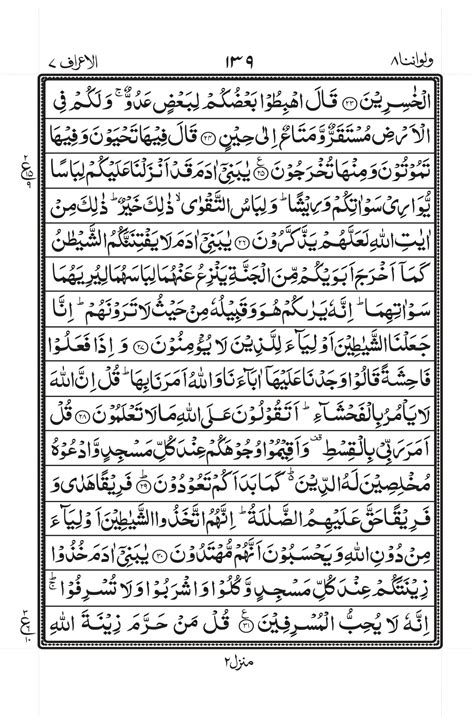 ولواننا ٨ ١٣٩ الاعراف ٧
الْخٰسِرِيْنَ ﴿۲۳﴾ قَالَ اهْبِطُوْا بَعْضُكُمْ لِبَعْضٍ عَدُوٌّ ۚ وَلَكُمْ فِى
الْاَرْضِ مُسْتَقَرٌّ وَّمَتَاعٌ اِلٰى حِيْنٍ ﴿۲۴﴾ قَالَ فِيْهَا تَحْيَوْنَ وَفِيْهَا
تَمُوْتُوْنَ وَمِنْهَا تُخْرَجُوْنَ ﴿۲۵﴾ يٰبَنِىْۤ اٰدَمَ قَدْ اَنْزَلْنَا عَلَيْكُمْ لِبَاسًا
يُّوَارِىْ سَوْاٰتِكُمْ وَرِيْشًا ؕ وَلِبَاسُ التَّقْوٰى ۙ ذٰلِكَ خَيْرٌ ؕ ذٰلِكَ مِنْ
اٰيٰتِ اللّٰهِ لَعَلَّهُمْ يَذَّكَّرُوْنَ ﴿۲۶﴾ يٰبَنِىْۤ اٰدَمَ لَا يَفْتِنَنَّكُمُ الشَّيْطٰنُ
كَمَاۤ اَخْرَجَ اَبَوَيْكُمْ مِّنَ الْجَنَّةِ يَنْزِعُ عَنْهُمَا لِبَاسَهُمَا لِيُرِيَهُمَا
سَوْاٰتِهِمَا ؕ اِنَّهٗ يَرٰىكُمْ هُوَ وَقَبِيْلُهٗ مِنْ حَيْثُ لَا تَرَوْنَهُمْ ؕ اِنَّا
جَعَلْنَا الشَّيٰطِيْنَ اَوْلِيَآءَ لِلَّذِيْنَ لَا يُؤْمِنُوْنَ ﴿۲۷﴾ وَ اِذَا فَعَلُوْا
فَاحِشَةً قَالُوْا وَجَدْنَا عَلَيْهَاۤ اٰبَآءَنَا وَاللّٰهُ اَمَرَنَا بِهَا ؕ قُلْ اِنَّ اللّٰهَ
لَا يَاْمُرُ بِالْفَحْشَآءِ ؕ اَتَقُوْلُوْنَ عَلَى اللّٰهِ مَا لَا تَعْلَمُوْنَ ﴿۲۸﴾ قُلْ
اَمَرَ رَبِّىْ بِالْقِسْطِ ۟ وَاَقِيْمُوْا وُجُوْهَكُمْ عِنْدَ كُلِّ مَسْجِدٍ وَّادْعُوْهُ
مُخْلِصِيْنَ لَهُ الدِّيْنَ ؕ كَمَا بَدَاَكُمْ تَعُوْدُوْنَ ﴿۲۹﴾ فَرِيْقًا هَدٰى وَ
فَرِيْقًا حَقَّ عَلَيْهِمُ الضَّلٰلَةُ ؕ اِنَّهُمُ اتَّخَذُوا الشَّيٰطِيْنَ اَوْلِيَآءَ
مِنْ دُوْنِ اللّٰهِ وَيَحْسَبُوْنَ اَنَّهُمْ مُّهْتَدُوْنَ ﴿۳۰﴾ يٰبَنِىْۤ اٰدَمَ خُذُوْا
زِيْنَتَكُمْ عِنْدَ كُلِّ مَسْجِدٍ وَّكُلُوْا وَاشْرَبُوْا وَلَا تُسْرِفُوْا ۚ
اِنَّهٗ لَا يُحِبُّ الْمُسْرِفِيْنَ ﴿۳۱﴾ قُلْ مَنْ حَرَّمَ زِيْنَةَ اللّٰهِ
منزل ٢